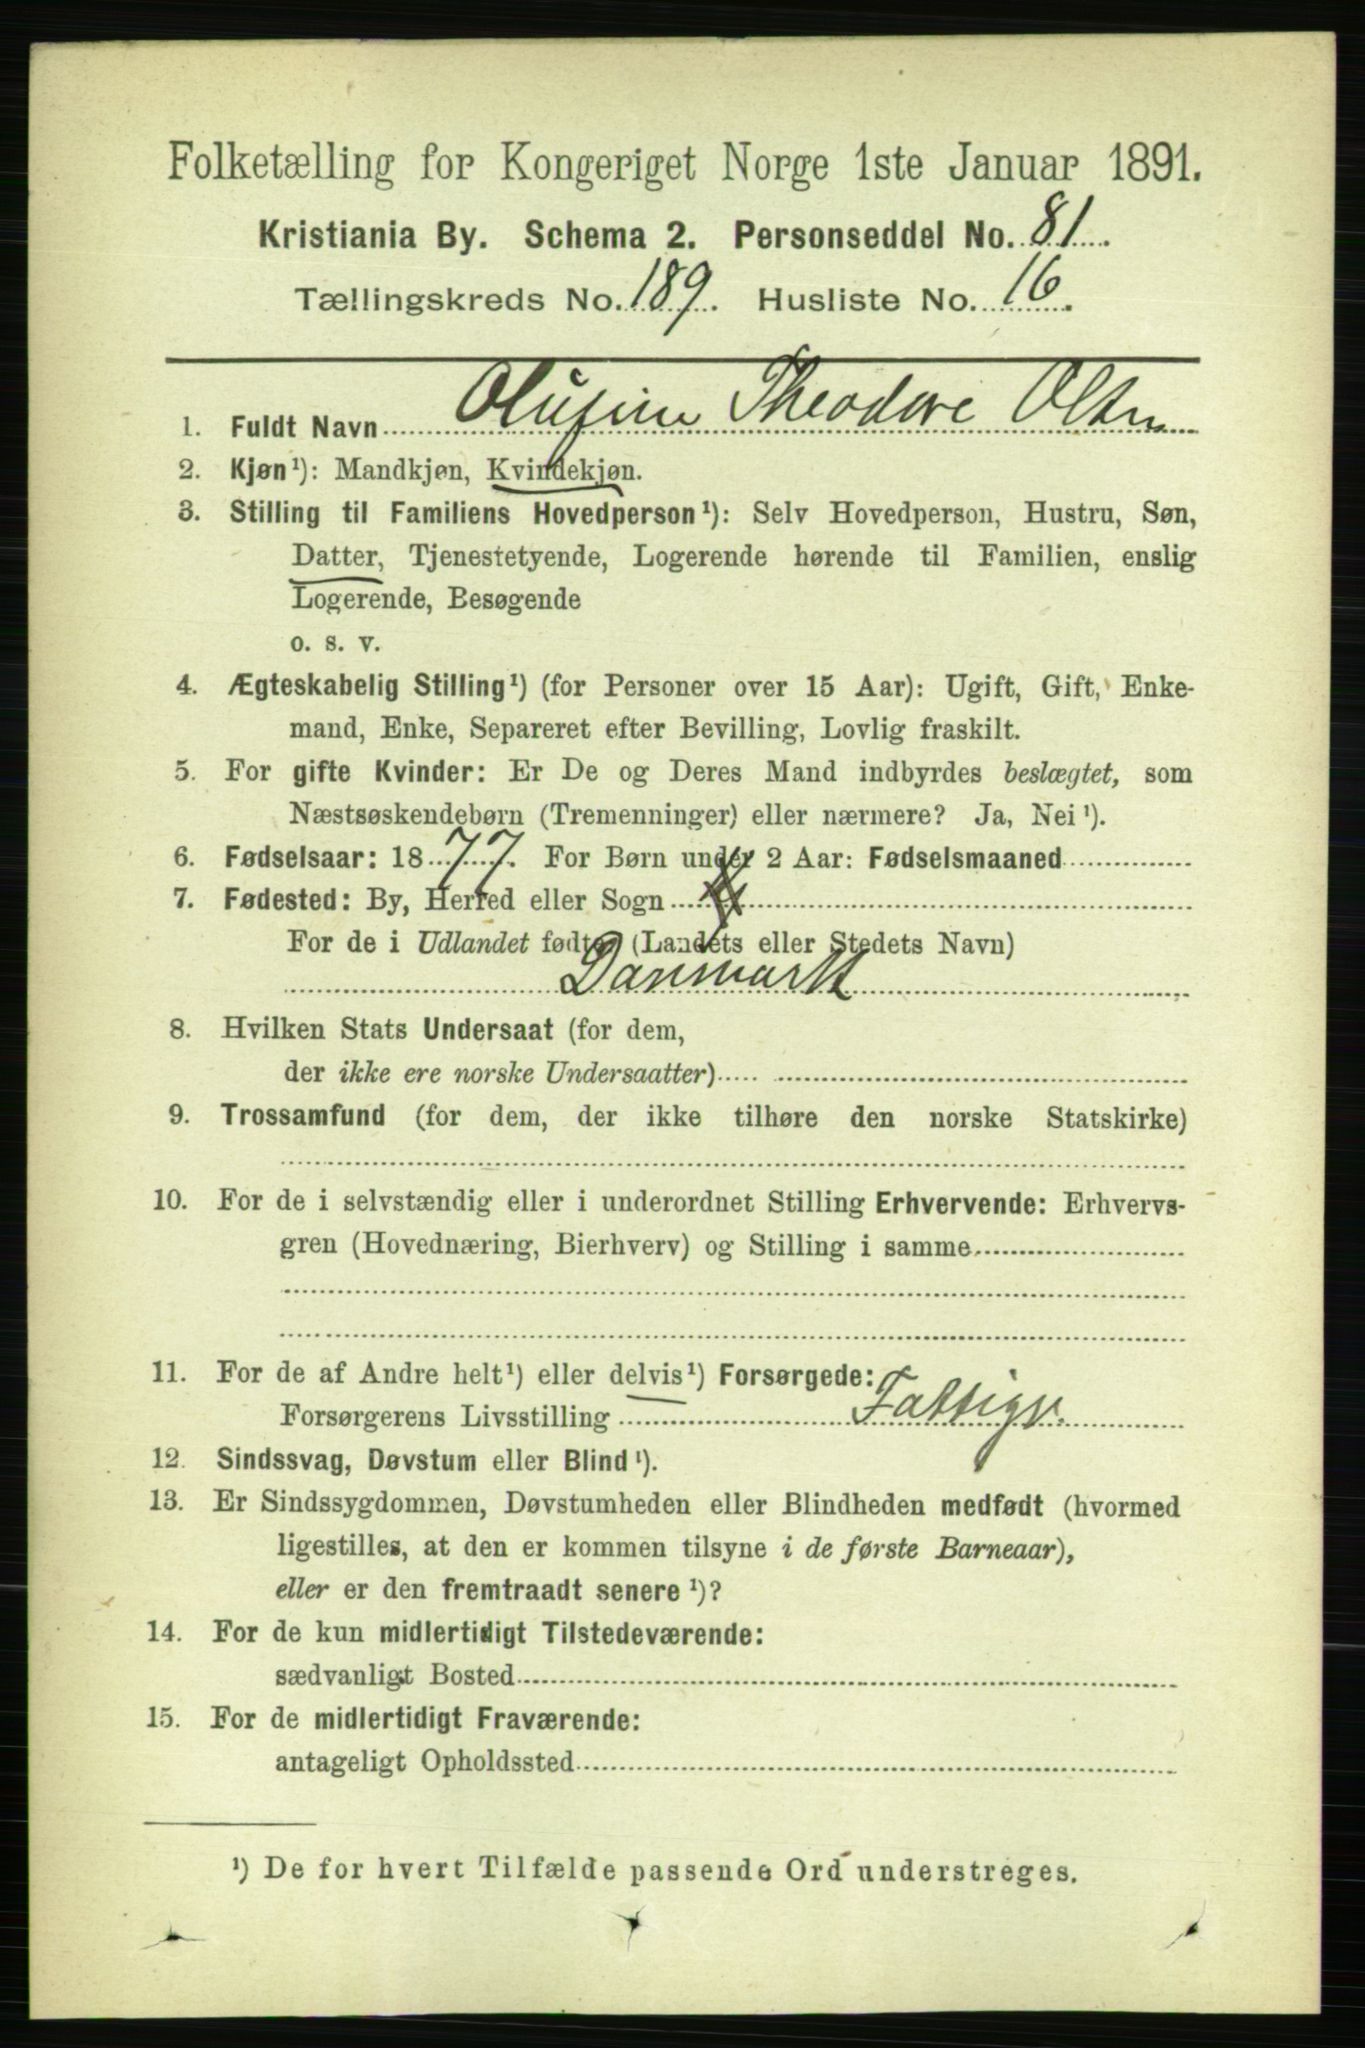 Folketælling for Kongeriget Norge 1ste Januar 1891.
Kristiania By. Schema 2. Personseddel No. 81.
Tællingskreds No. 189. Husliste No. 16.
1. Fuldt Navn Olufine Theodore Olsen
2. Kjøn¹): Mandkjøn, Kvindekjøn.
3. Stilling til Familiens Hovedperson¹): Selv Hovedperson, Hustru, Søn,
Datter, Tjenestetyende, Logerende hørende til Familien, enslig
Logerende, Besøgende
o. s. v.
4. Ægteskabelig Stilling¹) (for Personer over 15 Aar): Ugift, Gift, Enke-
mand, Enke, Separeret efter Bevilling, Lovlig fraskilt.
5. For gifte Kvinder: Er De og Deres Mand indbyrdes beslægtet, som
Næstsøskendebørn (Tremenninger) eller nærmere? Ja, Nei¹).
6. Fødselsaar: 1877. For Børn under 2 Aar: Fødselsmaaned
7. Fødested: By, Herred eller Sogn
For de i Udlandet fødte (Landets eller Stedets Navn)
Danmark
8. Hvilken Stats Undersaat (for dem,
der ikke ere norske Undersaatter)
9. Trossamfund (for dem, der ikke tilhøre den norske Statskirke)
10. For de i selvstændig eller i underordnet Stilling Erhvervende: Erhvervs-
gren (Hovednæring, Bierhverv) og Stilling i samme
11. For de af Andre helt¹) eller delvis¹) Forsørgede:
Forsørgerens Livsstilling Fattigv.
12. Sindssvag, Døvstum eller Blind¹).
13. Er Sindssygdommen, Døvstumheden eller Blindheden medfødt (hvormed
ligestilles, at den er kommen tilsyne i de første Barneaar),
eller er den fremtraadt senere¹)?
14. For de kun midlertidigt Tilstedeværende:
sædvanligt Bosted
15. For de midlertidigt Fraværende:
antageligt Opholdssted
¹) De for hvert Tilfælde passende Ord understreges.